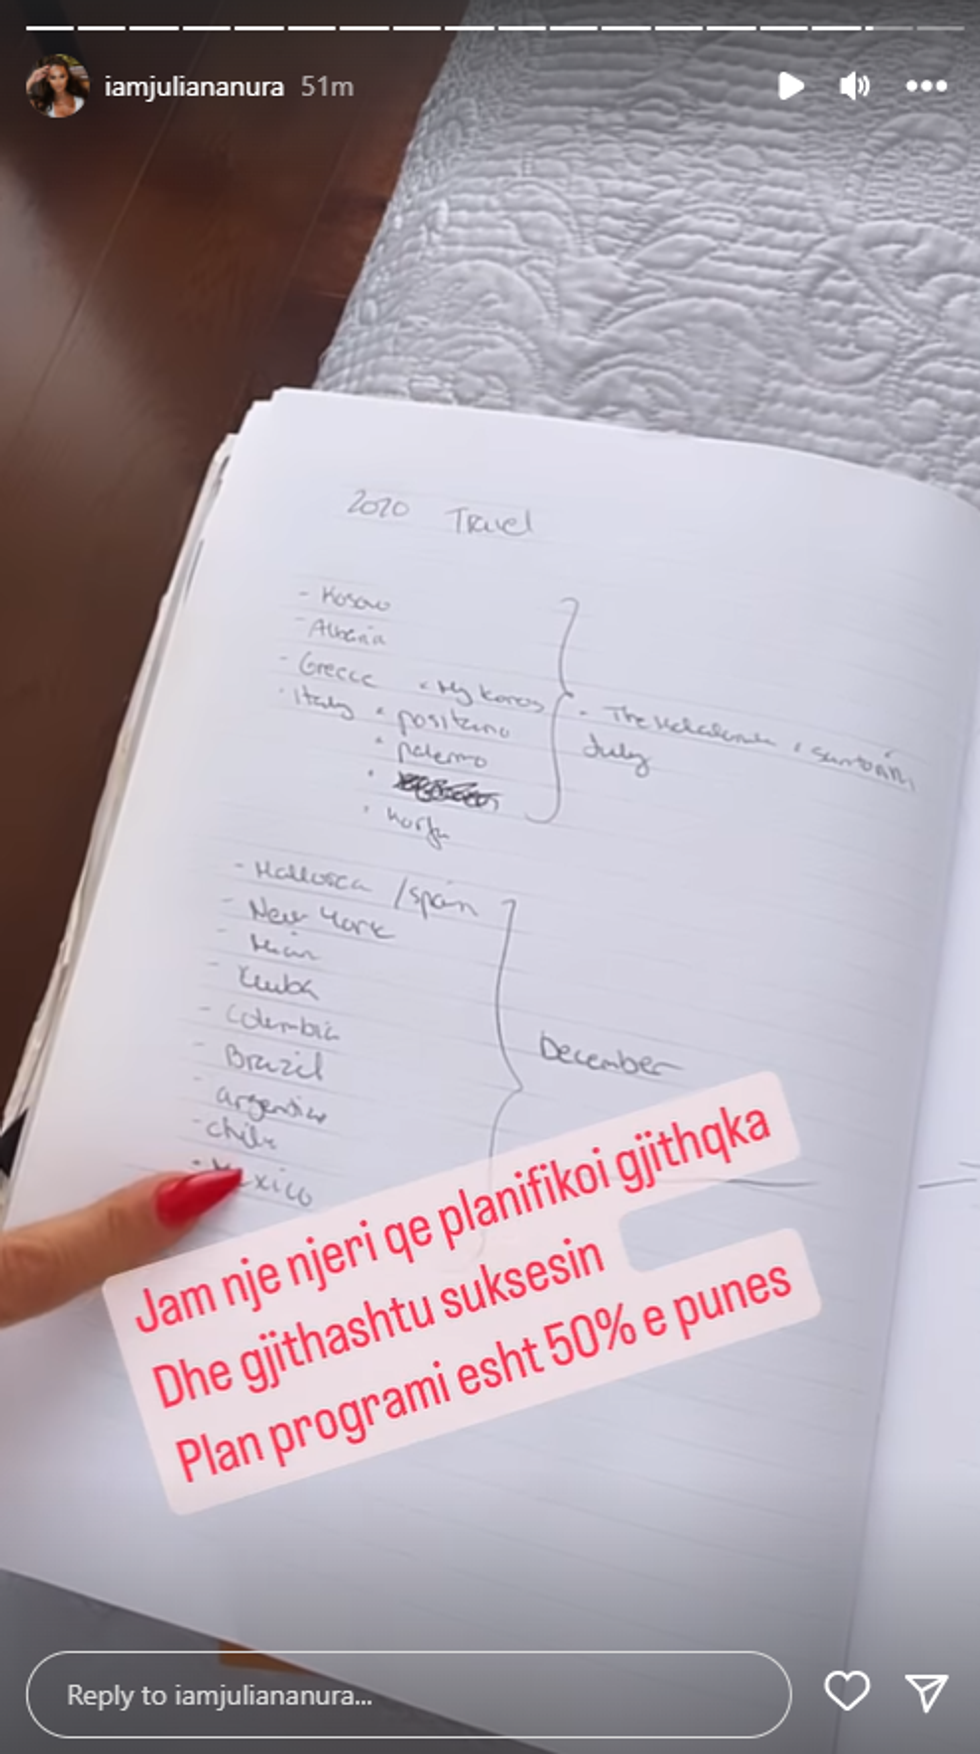 iamjuliananura 51m
2020 Travel
- Kosovo
- Albania
- Greece • Mykonos
- Italy • positano
• palermo
• Korfu
July
- Mallorca /spain
- New York
- Kuba
- Colombia
- Brazil
- argentina
- chile
- Mexico
December
Jam nje njeri qe planifikoi gjithqka
Dhe gjithashtu suksesin
Plan programi esht 50% e punes
Reply to iamjuliananura...